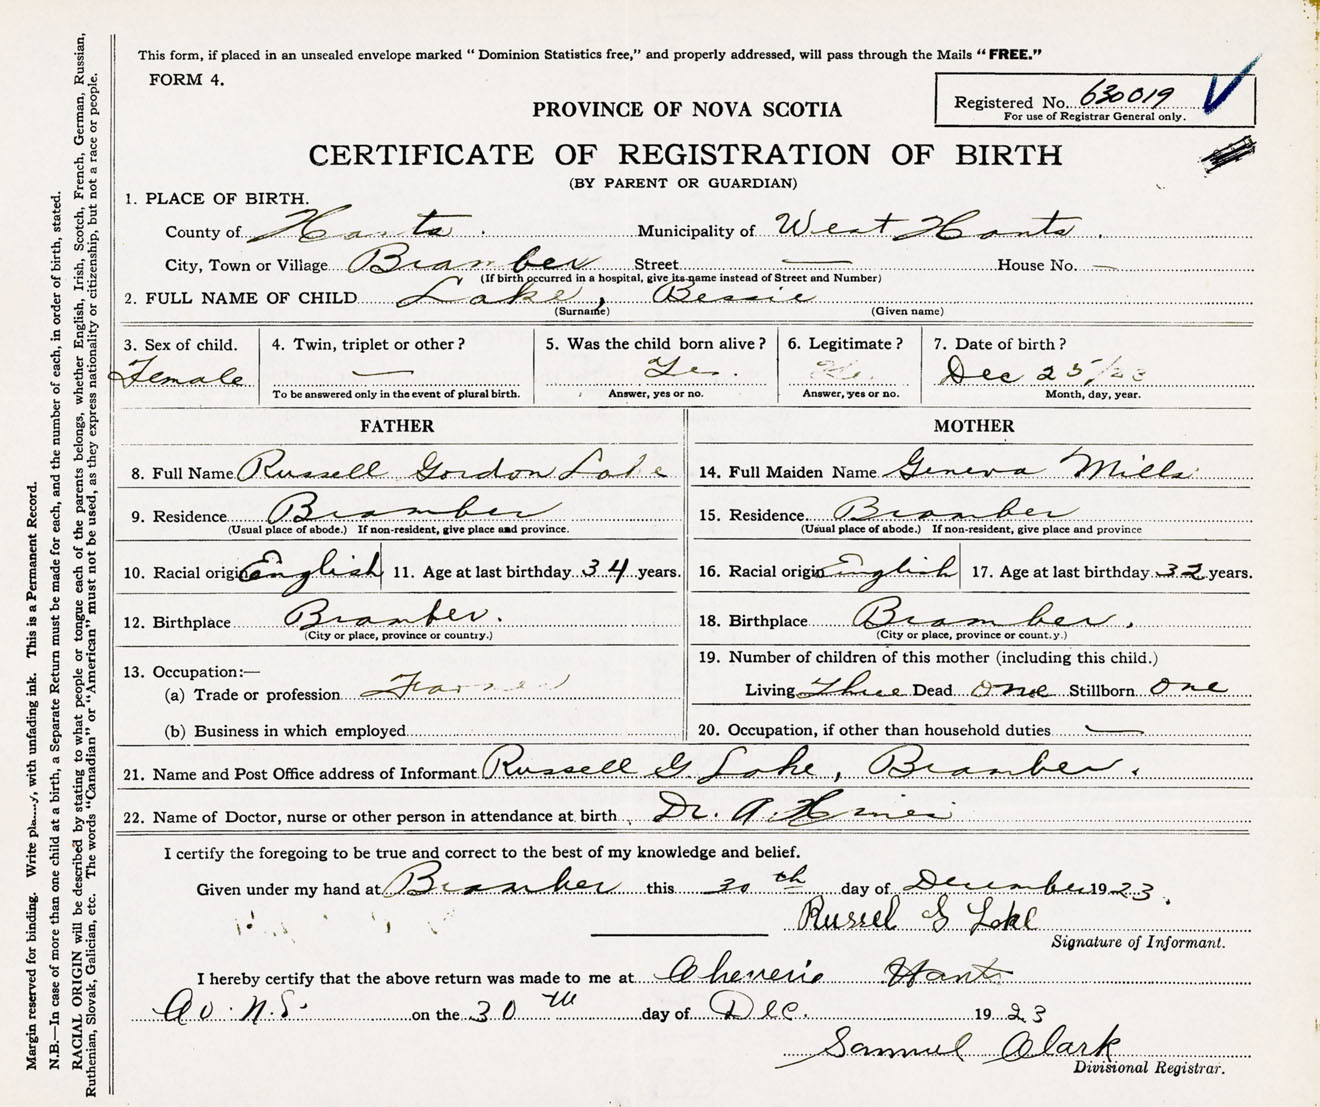 This form, if placed in an unsealed envelope marked "Dominion Statistics free," and properly addressed, will pass through the Mails "FREE."
FORM 4.
Registered No. 630019
For use of Registrar General only.
PROVINCE OF NOVA SCOTIA
CERTIFICATE OF REGISTRATION OF BIRTH
(BY PARENT OR GUARDIAN)
1. PLACE OF BIRTH.
County of Hants. Municipality of West Hants.
City, Town or Village Bramber Street — House No. —
(If birth occurred in a hospital, give its name instead of Street and Number)
2. FULL NAME OF CHILD Lake, Bessie
(Surname) (Given name)
3. Sex of child. 4. Twin, triplet or other? 5. Was the child born alive? 6. Legitimate? 7. Date of birth?
Female — Yes. Yes. Dec 25/23
To be answered only in the event of plural birth. Answer, yes or no. Answer, yes or no. Month, day, year.
FATHER MOTHER
8. Full Name Russell Gordon Lake 14. Full Maiden Name Geneva Mills
9. Residence Bramber 15. Residence Bramber
(Usual place of abode.) If non-resident, give place and province. (Usual place of abode.) If non-resident, give place and province
10. Racial origin English 11. Age at last birthday 34 years. 16. Racial origin English 17. Age at last birthday 32 years.
12. Birthplace Bramber. 18. Birthplace Bramber.
(City or place, province or country.) (City or place, province or count.y.)
13. Occupation:— 19. Number of children of this mother (including this child.)
(a) Trade or profession Farmer Living Three Dead one Stillborn one
(b) Business in which employed 20. Occupation, if other than household duties —
21. Name and Post Office address of Informant Russell G Lake, Bramber.
22. Name of Doctor, nurse or other person in attendance at birth Dr. A.
I certify the foregoing to be true and correct to the best of my knowledge and belief.
Given under my hand at Bramber this 30th day of December 1923.
Russel G Lake
Signature of Informant.
I hereby certify that the above return was made to me at Cheverie Hants
Co. N.S. on the 30th day of Dec. 1923
Samuel Clark
Divisional Registrar.
Margin reserved for binding. Write with unfading ink. This is a Permanent Record.
N.B.—In case of more than one child at a birth, a Separate Return must be made for each, and the number of each, in order of birth, stated.
RACIAL ORIGIN will be described by stating to what people or tongue each of the parents belongs, whether English, Irish, Scotch, French, German, Russian,
Ruthenian, Slovak, Galician, etc. The words "Canadian" or "American" must not be used, as they express nationality or citizenship, but not a race or people.